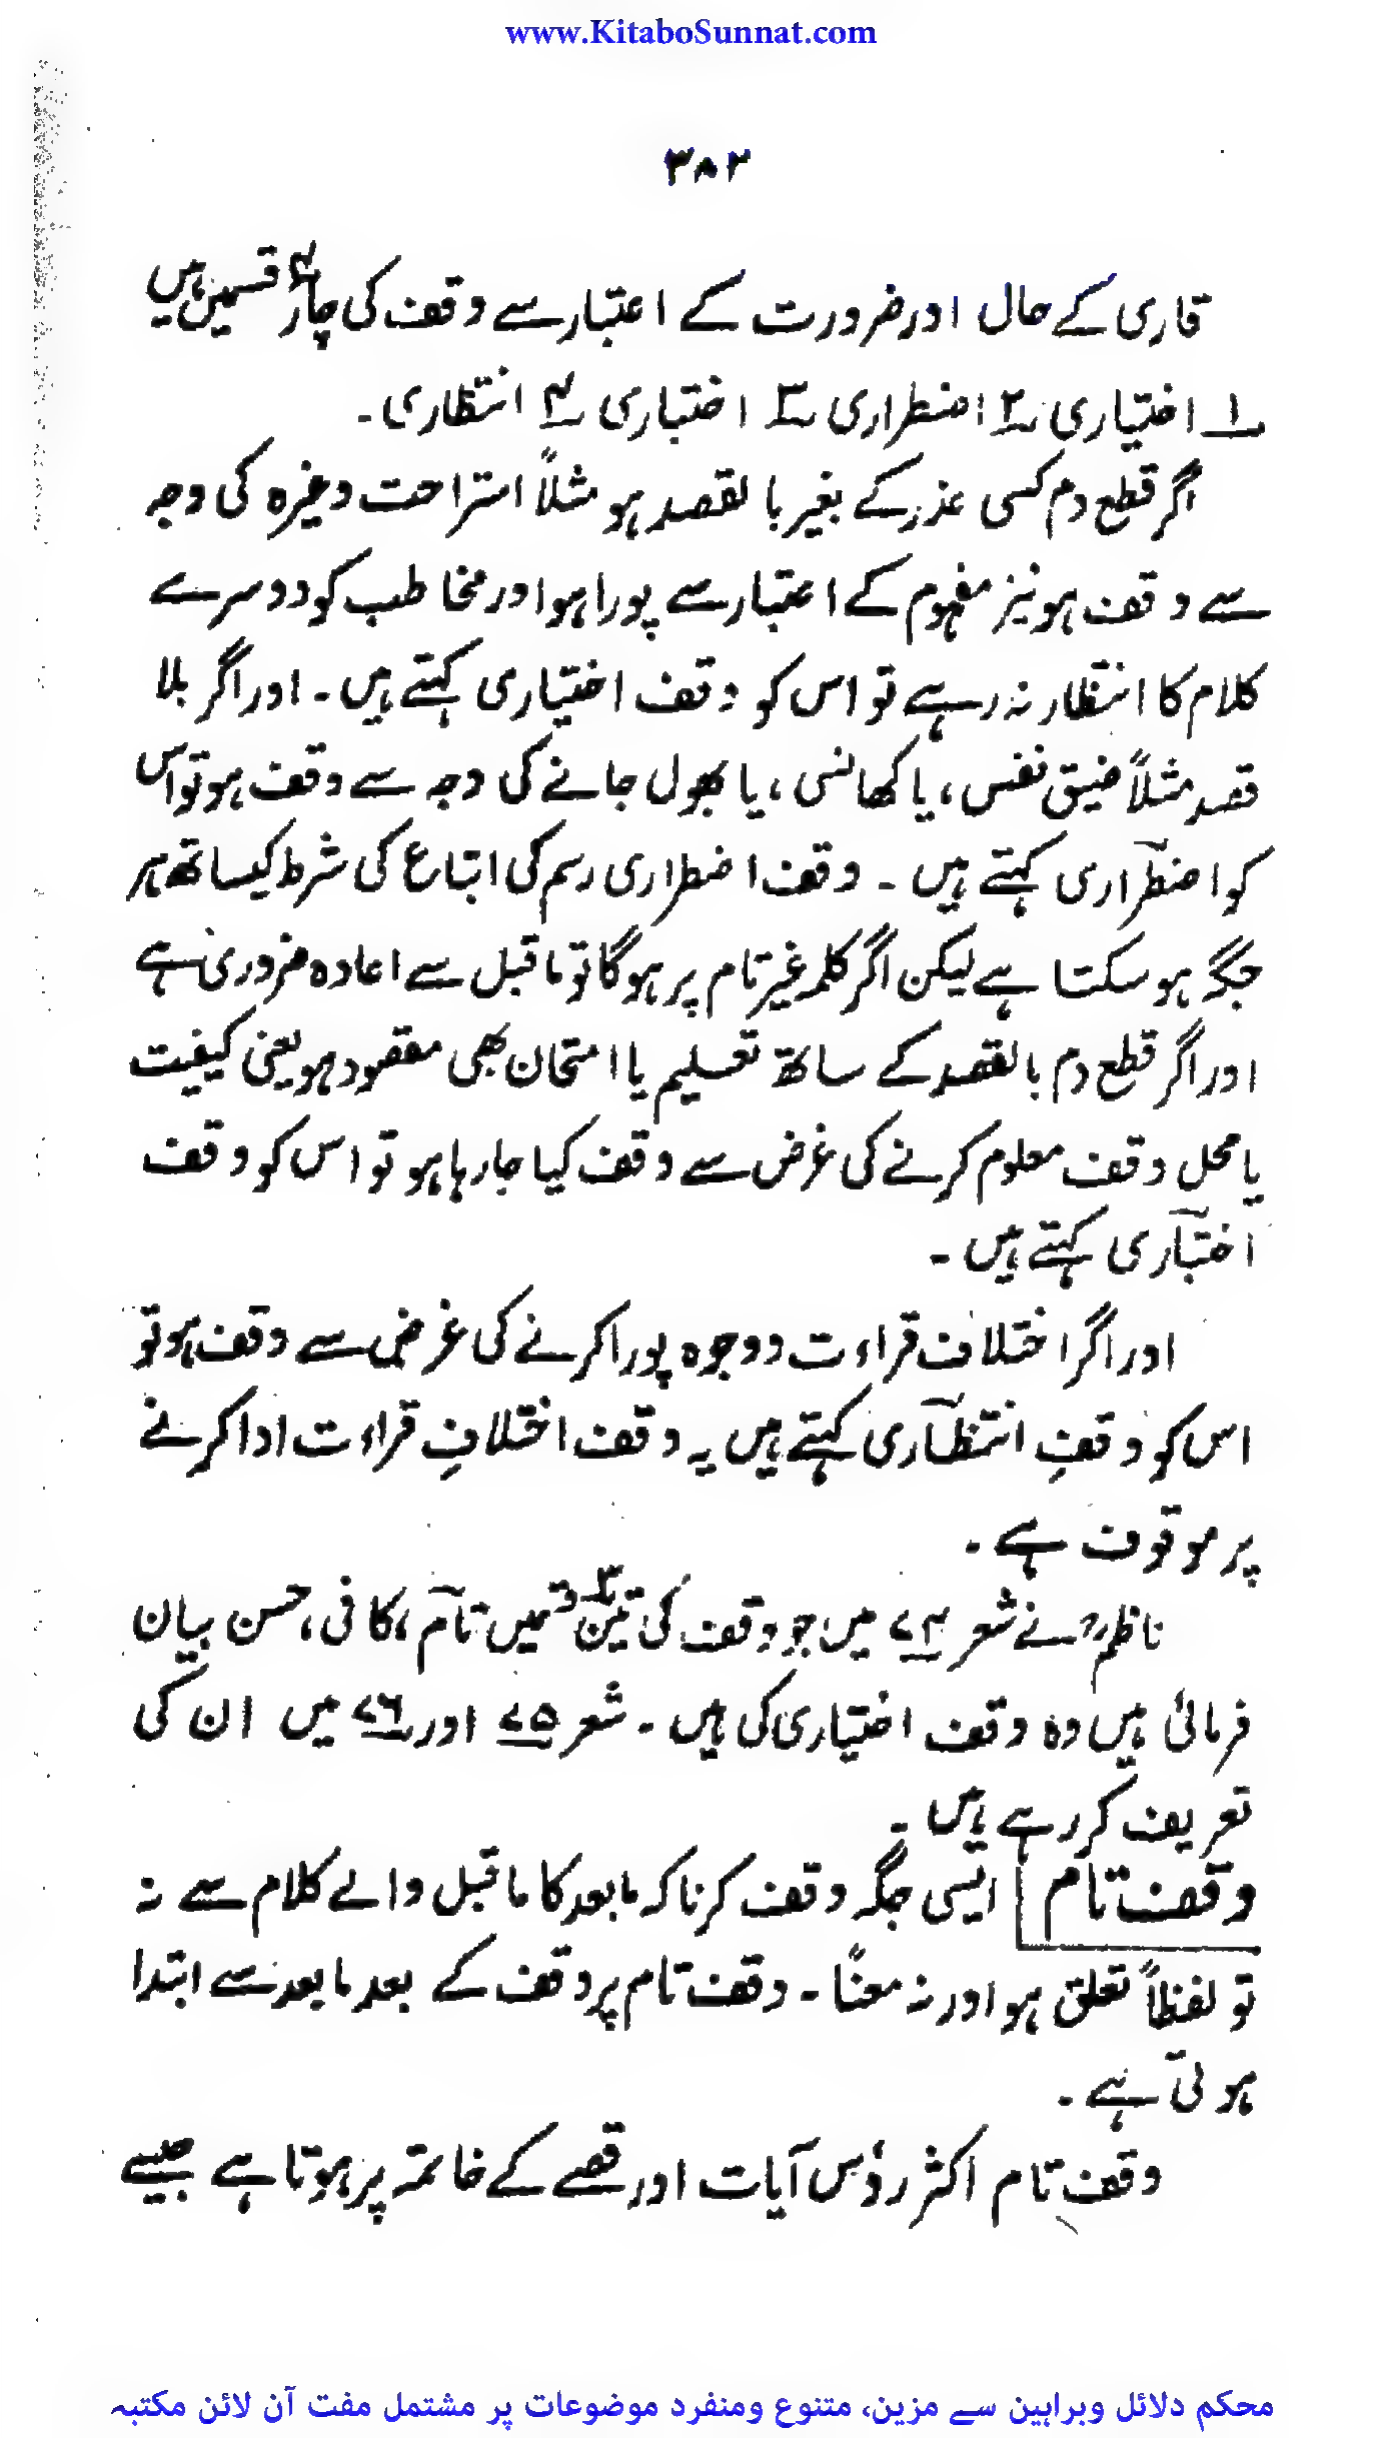 www.KitaboSunnat.com
۳۸۲
قاری کے حال اور ضرورت کے اعتبار سے وقف کی چار۴ قسمیں ہیں
۱؎ اختیاری ۲؎ اضطراری ۳؎ اختباری ۴؎ انتظاری۔
اگر قطع دم کسی عذر کے بغیر بالقصد ہو مثلاً استراحت وغیرہ کی وجہ
سے وقف ہو نیز مفہوم کے اعتبار سے پورا ہو اور مخاطب کو دوسرے
کلام کا انتظار نہ رہے تو اس کو وقف اختیاری کہتے ہیں۔ اور اگر بلا
قصد مثلاً ضیق نفس، یا کھانسی، یا بھول جانے کی وجہ سے وقف ہو تو اس
کو اضطراری کہتے ہیں۔ وقف اضطراری رسم کی اتباع کی شرط کیساتھ ہر
جگہ ہو سکتا ہے لیکن اگر کلمہ غیر تام پر ہوگا تو ماقبل سے اعادہ ضروری ہے
اور اگر قطع دم بالقصد کے ساتھ تعلیم یا امتحان بھی مقصود ہو یعنی کیفیت
یا محل وقف معلوم کرنے کی غرض سے وقف کیا جا رہا ہو تو اس کو وقف
اختباری کہتے ہیں۔
اور اگر اختلاف قراءت و وجوہ پورا کرنے کی غرض سے وقف ہو تو
اس کو وقفِ انتظاری کہتے ہیں یہ وقف اختلافِ قراءت ادا کرنے
پر موقوف ہے۔
ناظمؒ نے شعر ۷۴ میں جو وقف کی تین۳ قسمیں تام، کافی، حسن بیان
فرمائی ہیں وہ وقف اختیاری کی ہیں۔ شعر ۷۵ اور ۷۶ میں ان کی
تعریف کر رہے ہیں۔
وقف تام ایسی جگہ وقف کرنا کہ مابعد کا ماقبل والے کلام سے نہ
تو لفظاً تعلق ہو اور نہ معنًا۔ وقف تام پر وقف کے بعد مابعد سے ابتدا
ہوتی ہے۔
وقف تام اکثر رؤس آیات اور قصے کے خاتمہ پر ہوتا ہے جیسے
محکم دلائل وبراہین سے مزین، متنوع ومنفرد موضوعات پر مشتمل مفت آن لائن مکتبہ